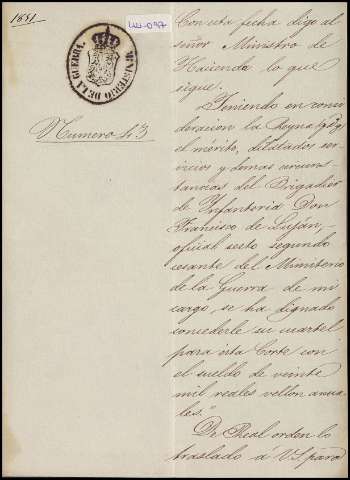 1851
MINISTERIO DE LA GUERRA.
Numero 43
Con esta fecha digo al
señor Ministro de
Hacienda lo que
sigue.
"Teniendo en consi
deracion la Reyna (q.D.g.)
el mérito, dilatados ser-
vicios y demas circuns-
tancias del Brigadier
de Infantería Don
Francisco de Luján,
oficial sesto segundo
cesante del Ministerio
de la Guerra de mi
cargo, se ha dignado
concederle su cuartel
para esta Corte con
el sueldo de veinte
mil reales vellon anua
les."
De Real orden lo
traslado á V.S. para